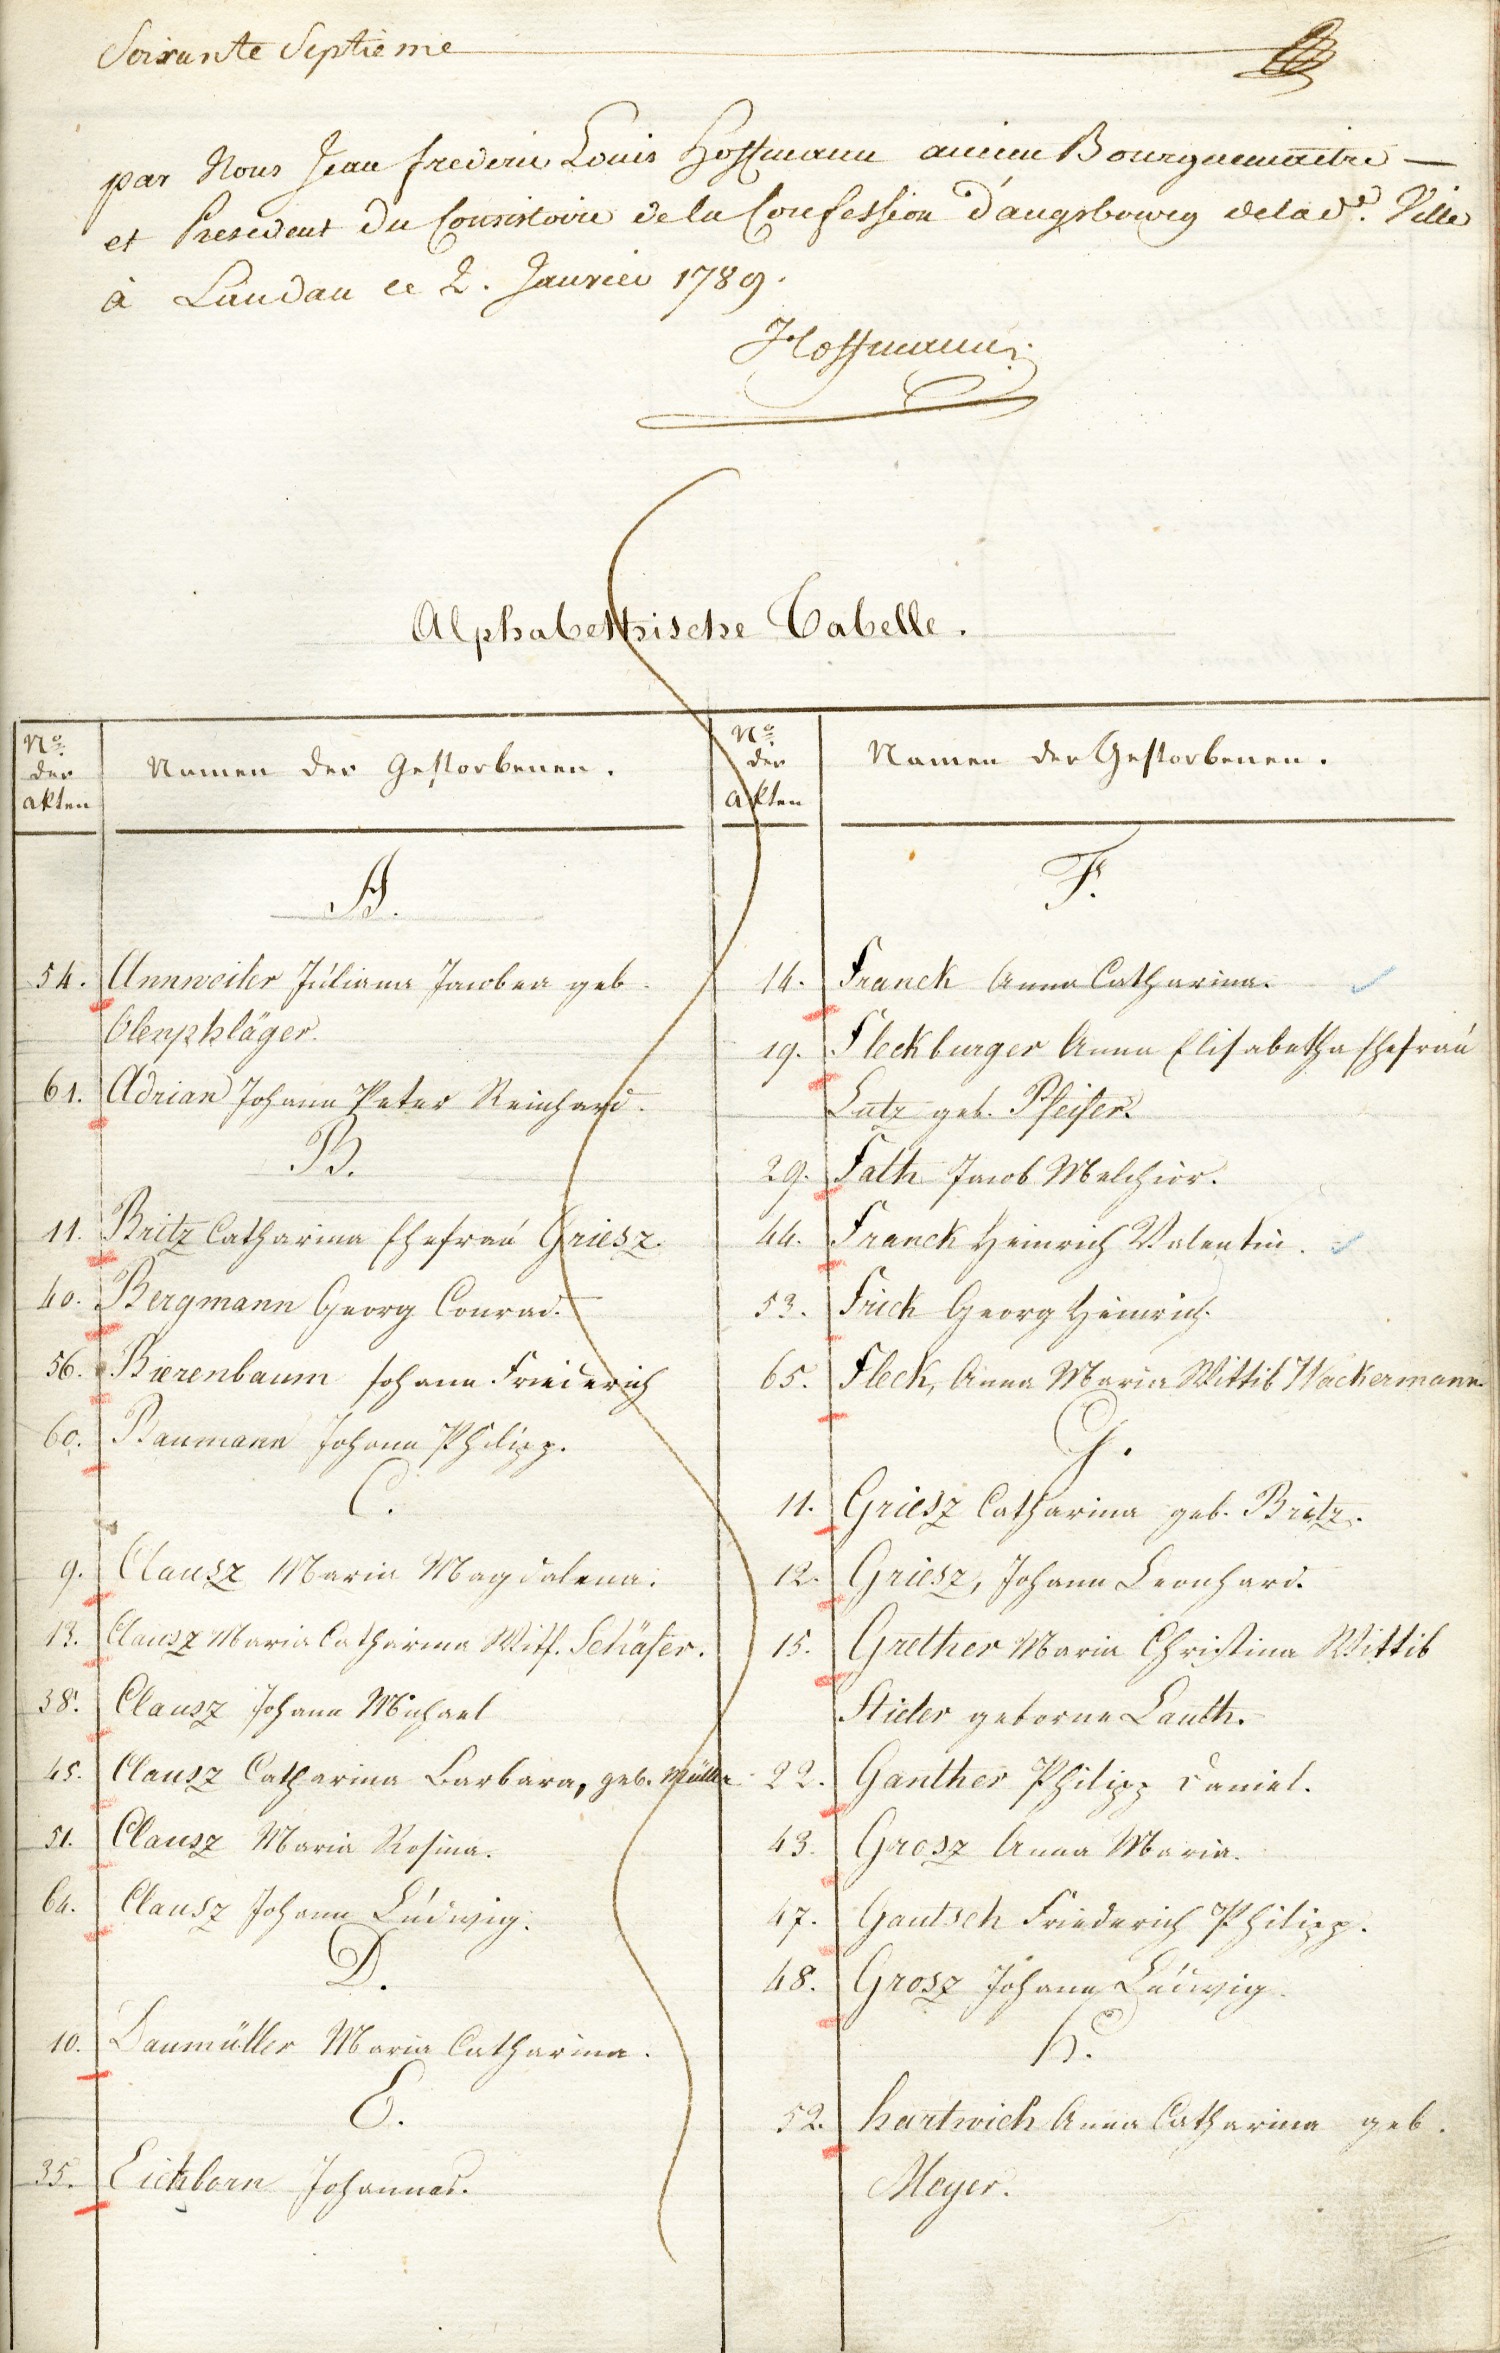 Soixante Septieme
par Nous Jean frederic Louis Hoffmann ancien Bourguemaitre —
et President du Consistoire de la Confession d'augsbourg de la d.e Ville
à Landau ce 2. Janvier 1789.
Hoffmann
Alphabethische Tabelle.
No. der akten
Namen der Gestorbenen.
A.
54. Annweiler Júliana Jacobea geb.
Olenschläger.
61. Adrian Johann Peter Reinhard.
B.
11. Britz Catharina Ehefraú Griesz.
40. Bergmann Georg Conrad.
56. Bierenbaum Johann Friederich
60. Baumann Johann Philipp.
C.
9. Clausz Maria Magdalena.
13. Clausz Maria Catharina Witf. Schäfer.
38. Clausz Johann Michael
45. Clausz Catharina Barbara, geb. Müller
51. Clausz Maria Rosina.
64. Clausz Johann Lúdwig.
D.
10. Daumüller Maria Catharina.
E.
35. Eichborn Johannes.
No. der akten
Namen der Gestorbenen.
F.
14. Franck Anna Catharina.
19. Fleckburger Anna Elisabetha Ehefraú
Lutz geb. Pfeifer.
29. Fath Jacob Melchior.
44. Franck Heinrich Valentin.
53. Frick Georg Heinrich.
65. Fleck, Anna Maria Wittib Wackermann.
G.
11. Griesz Catharina geb. Britz.
12. Griesz, Johann Leonhard.
15. Grether Maria Christina Wittib
Stieler geborne Lauth.
22. Ganther Philipp Daniel.
43. Grosz Anna Maria.
47. Gautsch Friederich Philipp.
48. Grosz Johann Lúdwig.
H.
52. Hartwich Anna Catharina geb.
Meyer.